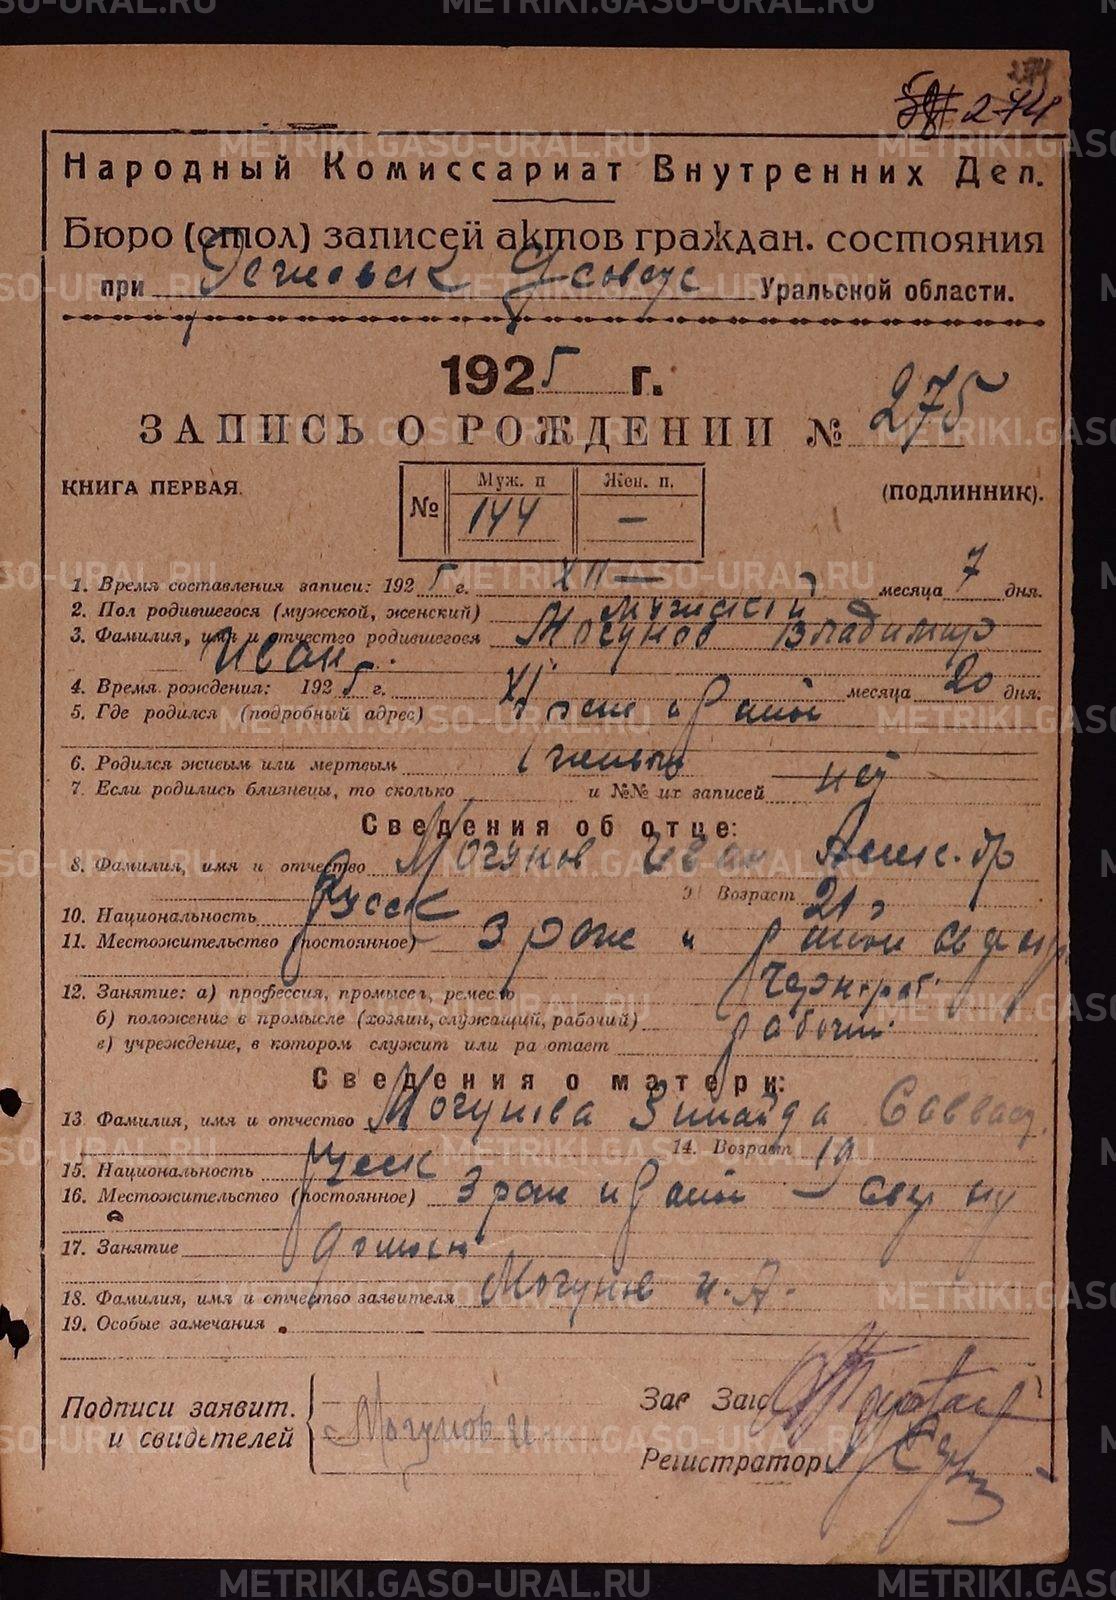 274
274
Народный Комиссариат Внутренних Дел.
Бюро (стол) записей актов граждан. состояния
при Уральской области.
1925 г.
ЗАПИСЬ О РОЖДЕНИИ № 275
КНИГА ПЕРВАЯ.
(ПОДЛИННИК).
№ Муж. п Жен. п.
144 —
1. Время составления записи: 1925 г. XII — месяца 7 дня.
2. Пол родившегося (мужской, женский) мужской
3. Фамилия, имя и отчество родившегося Могунов Владимир
Иван.
4. Время рождения: 1925 г. XI месяца 20 дня.
5. Где родился (подробный адрес)
6. Родился живым или мертвым
7. Если родились близнецы, то сколько и №№ их записей нет
Сведения об отце:
8. Фамилия, имя и отчество Могунов Иван Алекс-др
9 Возраст 21
10. Национальность Русск
11. Местожительство (постоянное)
12. Занятие: а) профессия, промысел, ремесло Чернораб.
б) положение в промысле (хозяин, служащий, рабочий) рабочий
в) учреждение, в котором служит или ра отает
Сведения о матери:
13. Фамилия, имя и отчество Могунова Зинаида
14. Возраст 19
15. Национальность Русск
16. Местожительство (постоянное)
17. Занятие домохоз
18. Фамилия, имя и отчество заявителя Могунов И. А.
19. Особые замечания
Подписи заявит.
и свидетелей
Могунов И
Зав Загс
Регистратор
METRIKI.GASO-URAL.RU